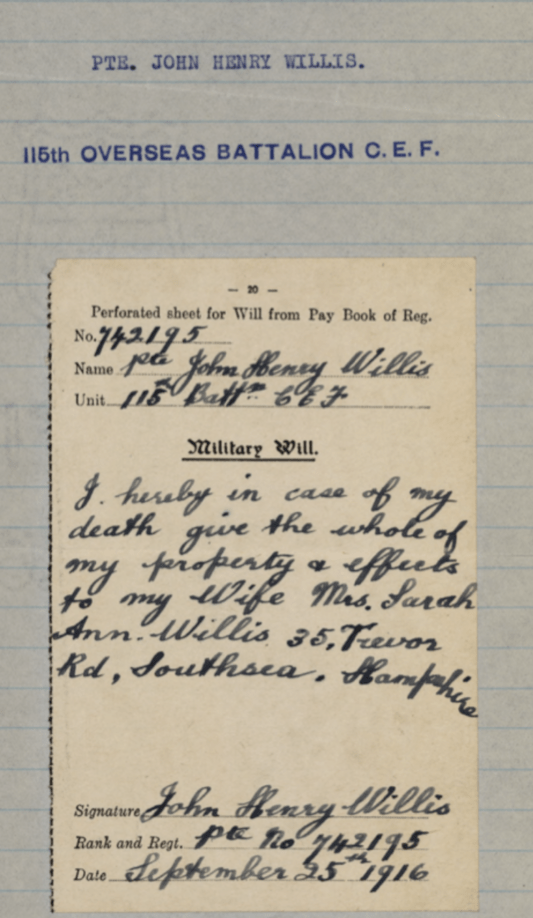 PTE. JOHN HENRY WILLIS.
115th OVERSEAS BATTALION C. E. F.
— 20 —
Perforated sheet for Will from Pay Book of Reg.
No. 742195
Name Pte John Henry Willis
Unit 115th Battn C E F
Military Will.
I. hereby in case of my
death give the whole of
my property & effects
to my Wife Mrs. Sarah
Ann. Willis 35, Trevor
Rd, Southsea. Hampshire
Signature John Henry Willis
Rank and Regt. Pte No 742195
Date September 25th 1916